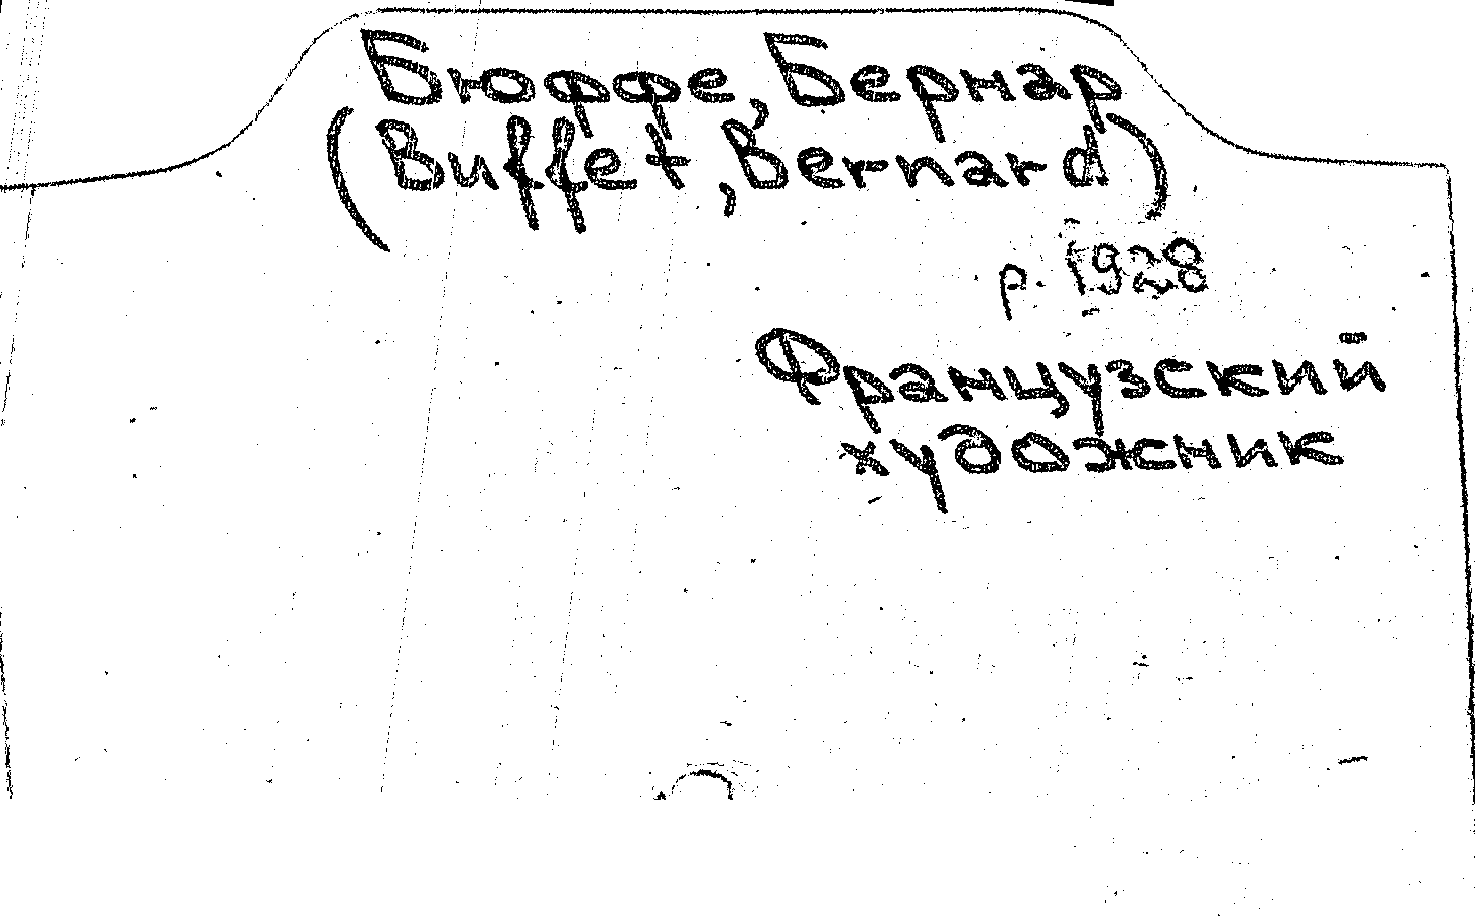 Бюффе, Бернар
(Buffet, Bernard)
р. 1928
Французский
художник